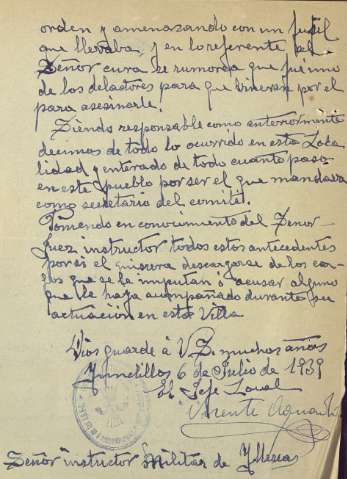 orden y amenazando con un fusil
que llevaba, y en lo referente al
Señor cura se rumorea que fué uno
de los delatores para que vinieran por el
para asesinarle.
Siendo responsable como anteriormente
decimos de todo lo ocurrido en esta Loca
lidad y enterado de todo cuanto paso
en este pueblo por ser el que mandava
como secretario del comité.
Pomendo en conocimiento del Señor
Juez instructor todos estos antecedentes
por si el quisiera descargarse de los car
gos que se le imputan ó acusar alguno
que le haya acompañado durante su
actuación en esta Villa
Dios guarde á V S muchos años
Yunclillos 6 de Julio de 1939
El Jefe Local
Vicente
Señor instructor Militar de Yllescas